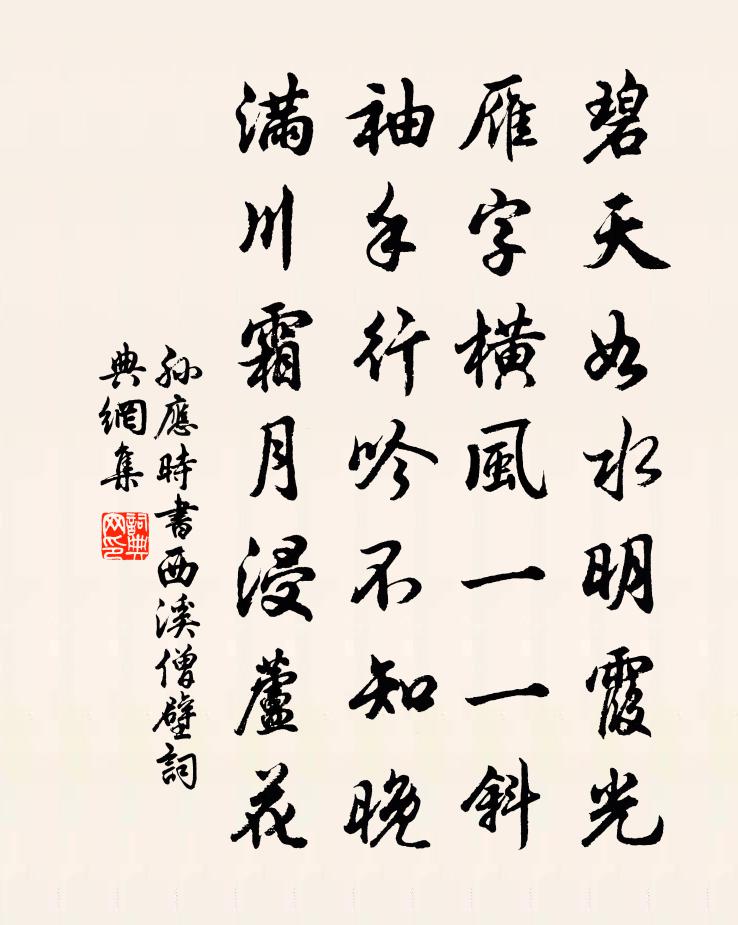 碧天如水明霞光
雁字横風一一斜
袖手行吟不知晚
滿川霜月浸蘆花
孫應時書西溪僧壁詞
典網集
詞典
网印